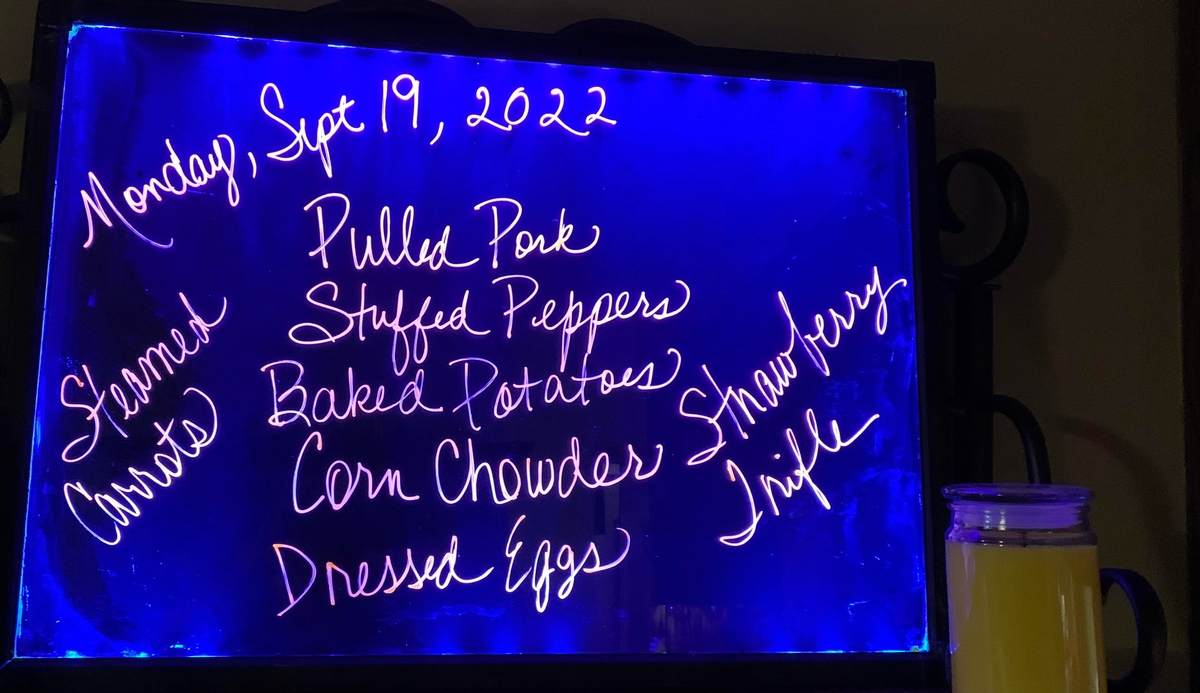 Monday, Sept 19, 2022
Pulled Pork
Stuffed Peppers
Baked Potatoes
Corn Chowder
Dressed Eggs
Steamed
Carrots
Strawberry
Trifle